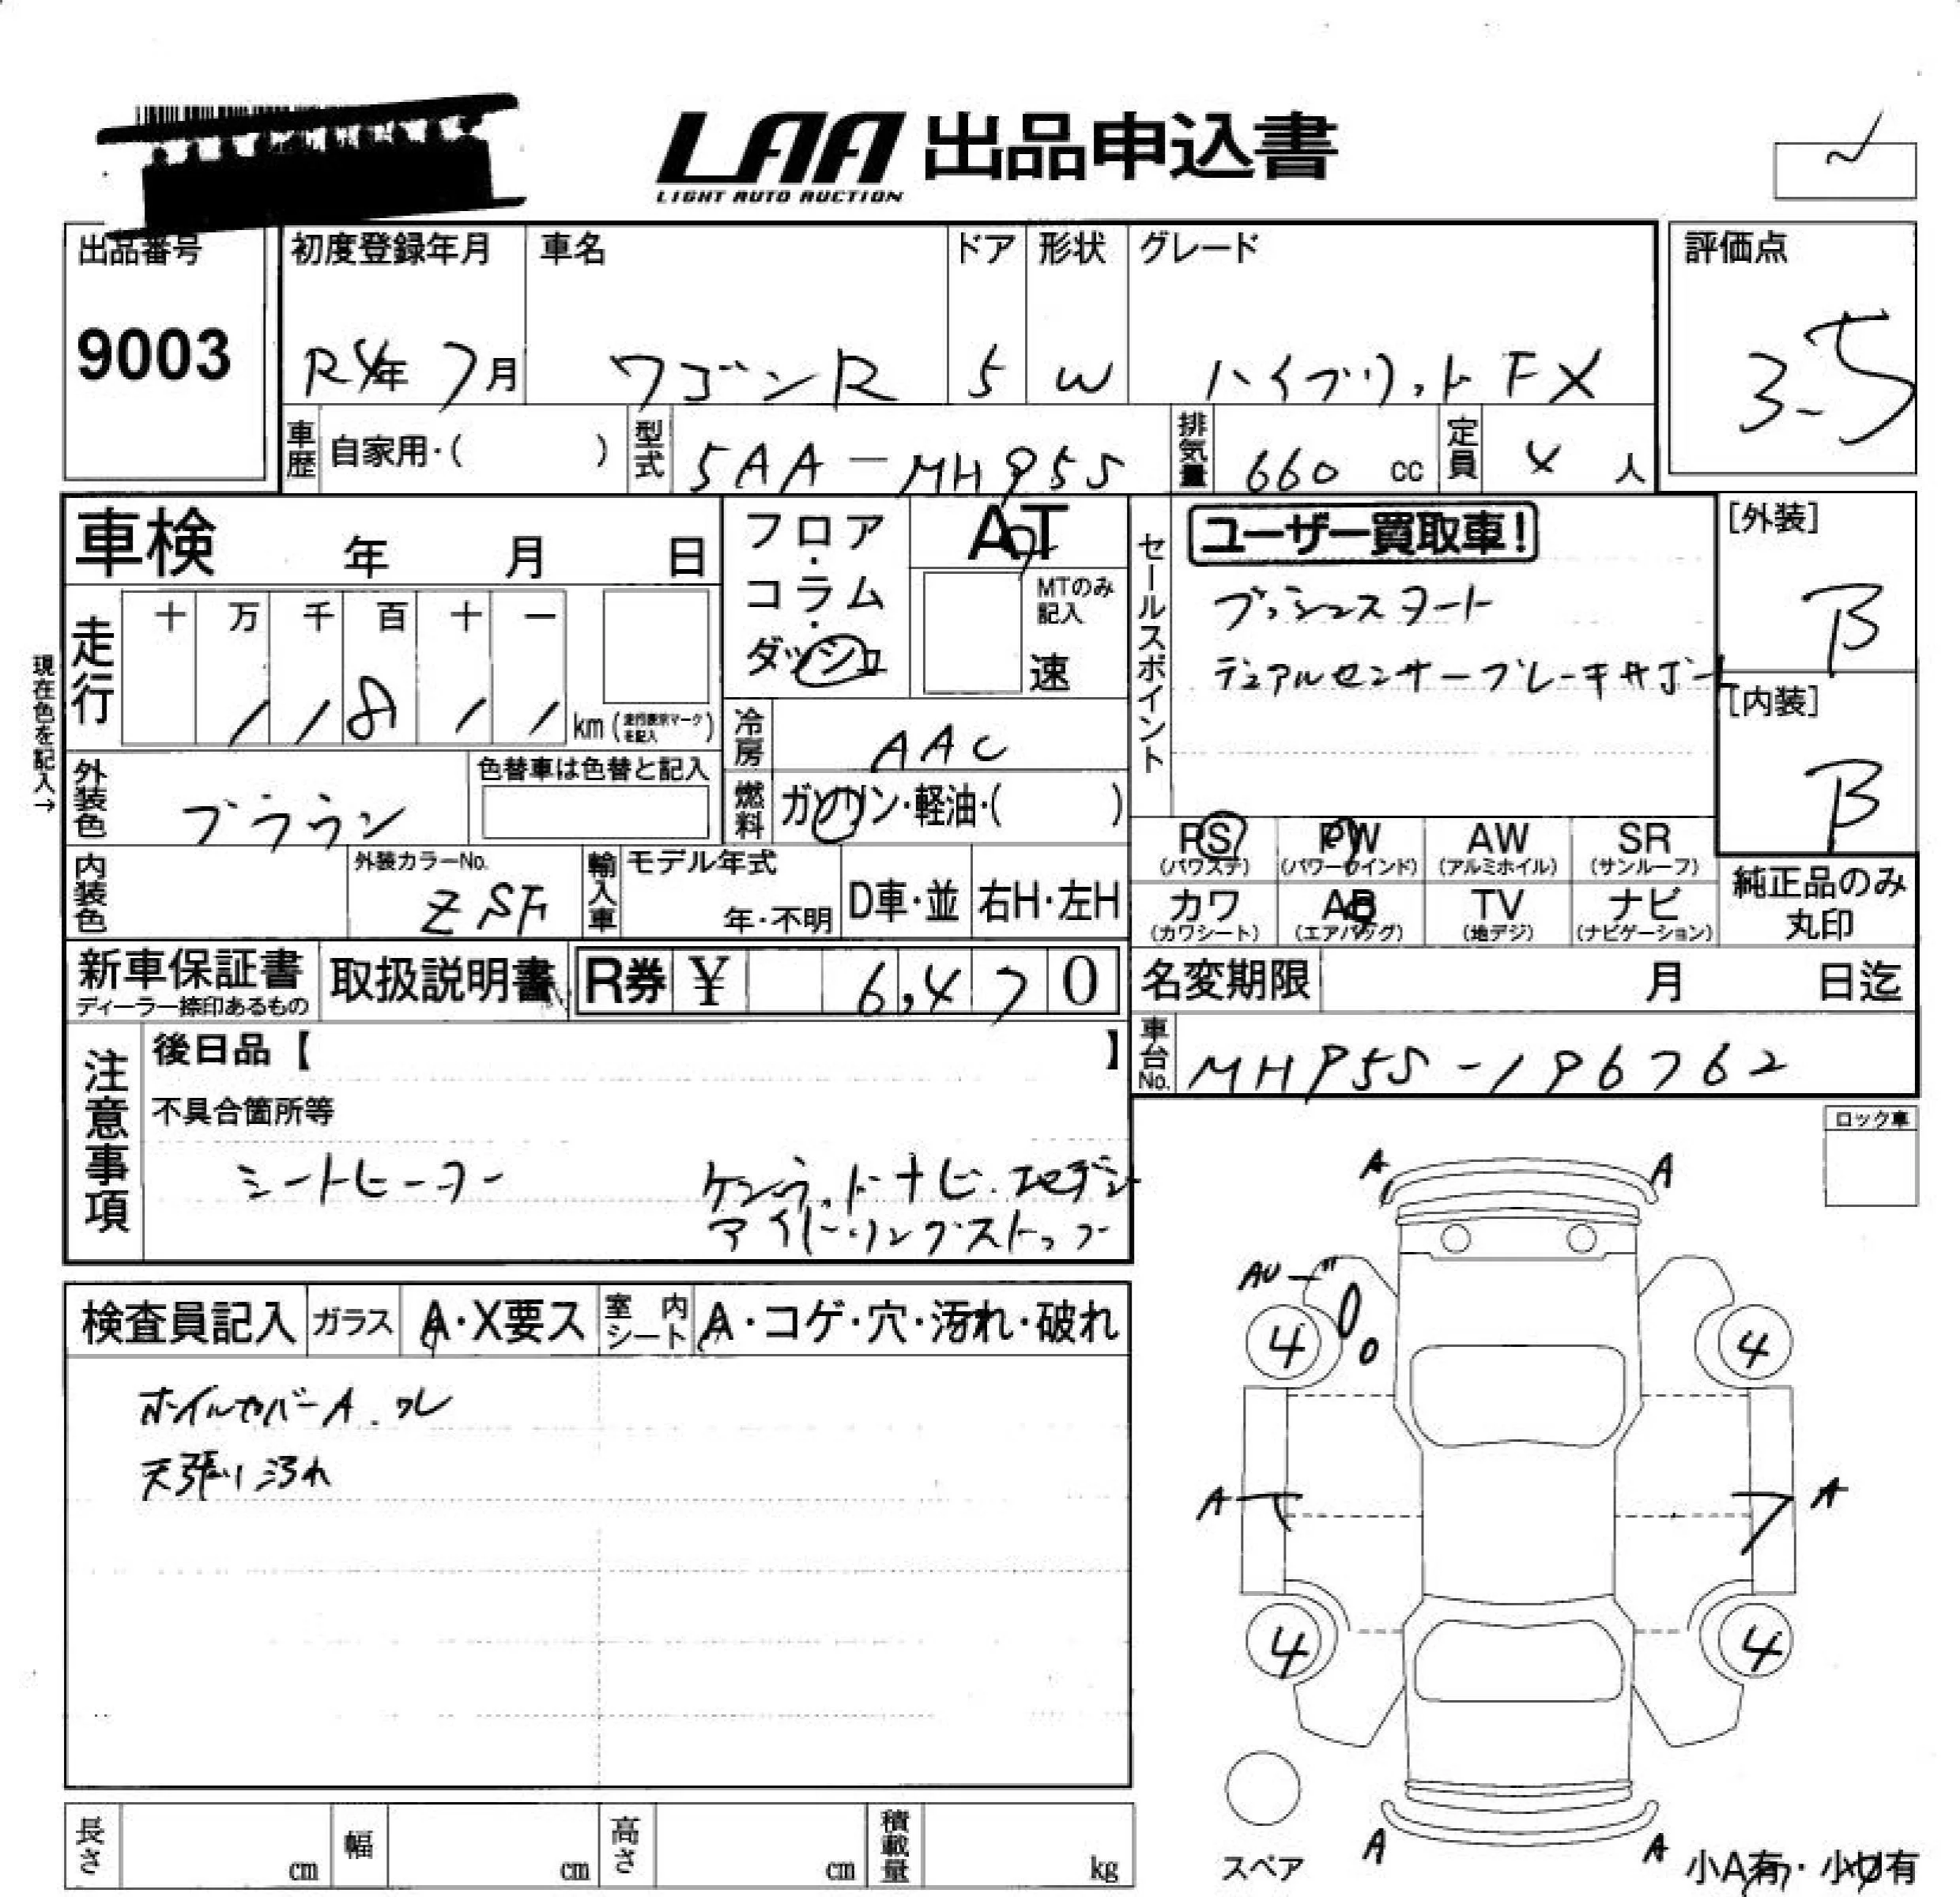 LAA 出品申込書
LIGHT AUTO AUCTION
出品番号
9003
初度登録年月
R4年 7月
車名
ワゴンR
ドア
5
形状
W
グレード
ハイブリッド FX
評価点
3.5
車歴 自家用・( )
型式 5AA-MH95S
排気量 660 cc
定員 4 人
車検 年 月 日
フロア・コラム・ダッシュ
AT
MTのみ記入
速
セールスポイント
ユーザー買取車!
プッシュスタート
デュアルセンサーブレーキサポート
[外装]
B
[内装]
B
現在色を記入→
走行 十 万 千 百 十 一
1 1 8 1 1 km (走行表示マークを記入)
冷房 AAC
燃料 ガソリン・軽油・( )
外装色 ブラウン
色替車は色替と記入
内装色
外装カラーNo.
ZSF
輸入車 モデル年式
年・不明
D車・並
右H・左H
PS (パワステ)
PW (パワーウインド)
AW (アルミホイル)
SR (サンルーフ)
カワ (カワシート)
AB (エアバッグ)
TV (地デジ)
ナビ (ナビゲーション)
純正品のみ丸印
新車保証書
ディーラー捺印あるもの
取扱説明書
R券 ¥ 6,470
名変期限 月 日迄
車台No. MH95S-196762
注意事項
後日品【 】
不具合箇所等
シートヒーター
ケンウッドナビ.フルセグ
アイドリングストップ
ロック車
検査員記入
ガラス A・X要ス
室内シート A・コゲ・穴・汚れ・破れ
ホイルカバーA.ワレ
天張り汚れ
A A
AU
4 4
A A
4 4
A A
スペア
小A有・小U有
長さ cm
幅 cm
高さ cm
積載量 kg